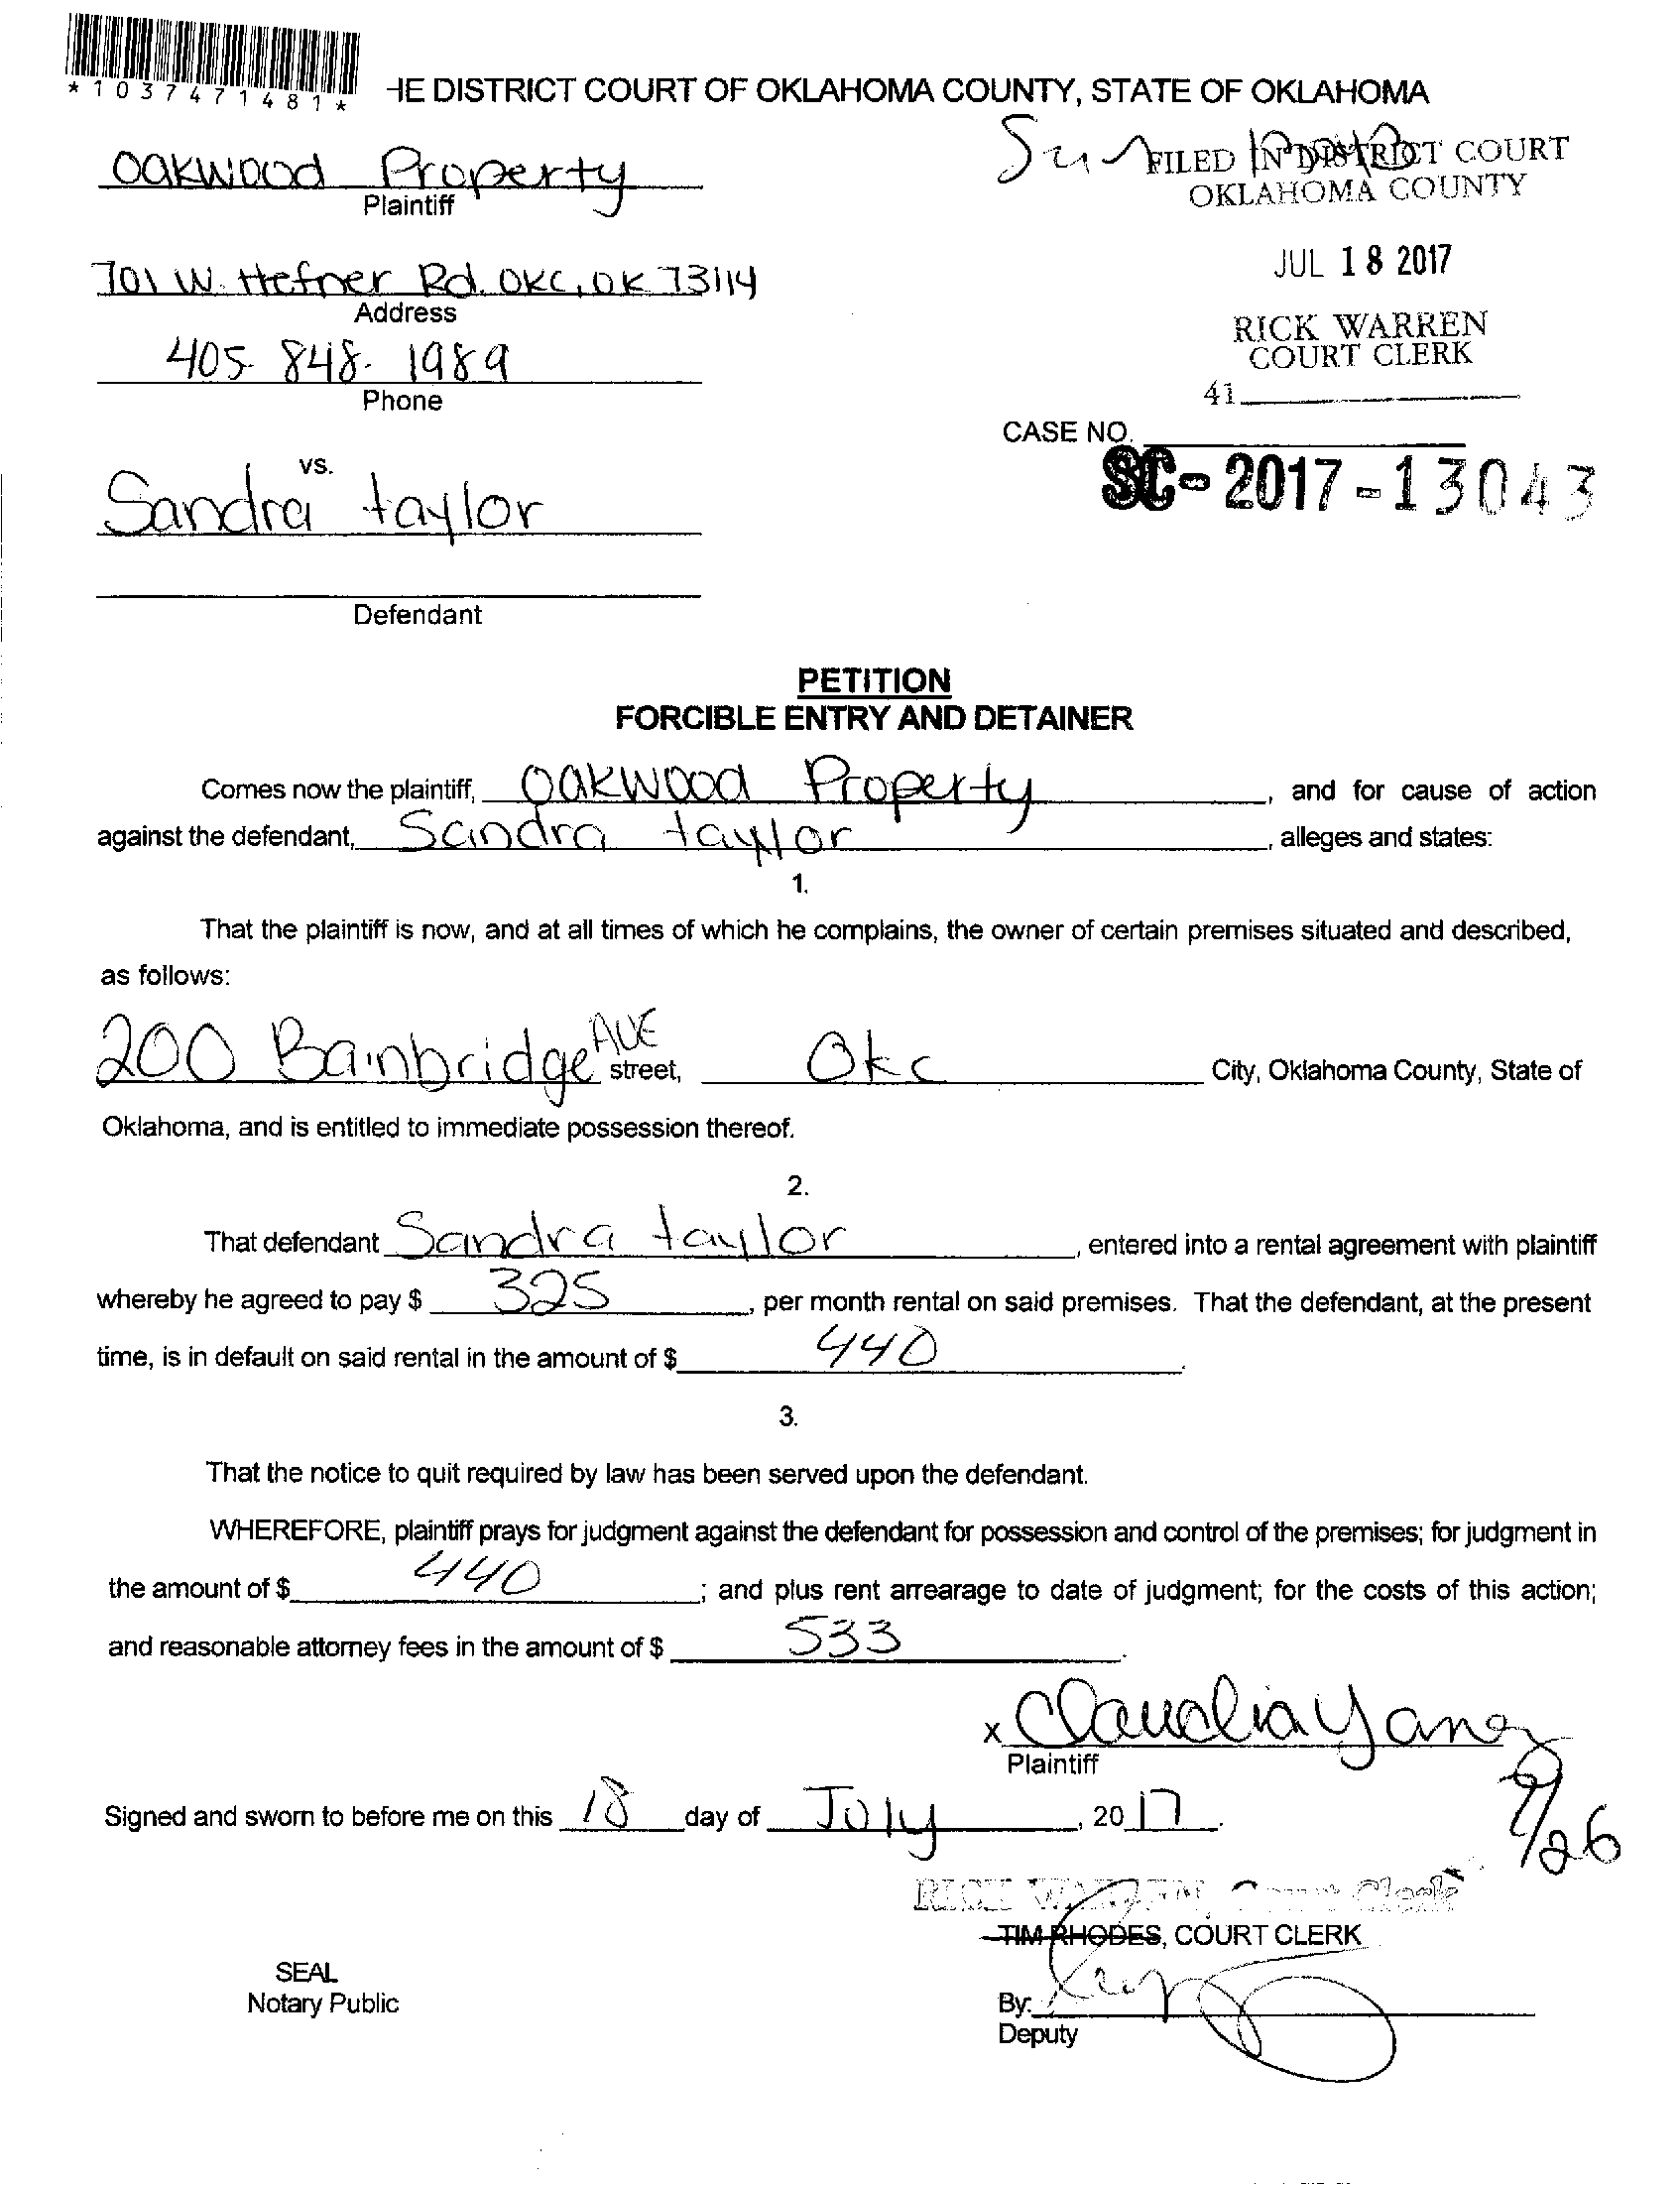 *1037471481*
HE DISTRICT COURT OF OKLAHOMA COUNTY, STATE OF OKLAHOMA
Oakwood Property
Plaintiff
FILED IN DISTRICT COURT
OKLAHOMA COUNTY
701 W. Hefner Rd. OKC, OK 73114
Address
JUL 18 2017
405-848-1989
Phone
RICK WARREN
COURT CLERK
41
CASE NO.
SC-2017-13043
vs.
Sandra taylor
Defendant
PETITION
FORCIBLE ENTRY AND DETAINER
Comes now the plaintiff, Oakwood Property, and for cause of action
against the defendant, Sandra taylor, alleges and states:
1.
That the plaintiff is now, and at all times of which he complains, the owner of certain premises situated and described,
as follows:
200 Bainbridge AVE street, Okc City, Oklahoma County, State of
Oklahoma, and is entitled to immediate possession thereof.
2.
That defendant Sandra taylor, entered into a rental agreement with plaintiff
whereby he agreed to pay $ 325, per month rental on said premises. That the defendant, at the present
time, is in default on said rental in the amount of $ 440.
3.
That the notice to quit required by law has been served upon the defendant.
WHEREFORE, plaintiff prays for judgment against the defendant for possession and control of the premises; for judgment in
the amount of $ 440; and plus rent arrearage to date of judgment; for the costs of this action;
and reasonable attorney fees in the amount of $ 533.
x Claudia Yanez
Plaintiff
Signed and sworn to before me on this 18 day of July, 2017.
7/26
RICK WARREN, Court Clerk
TIM RHODES, COURT CLERK
SEAL
Notary Public
By:
Deputy